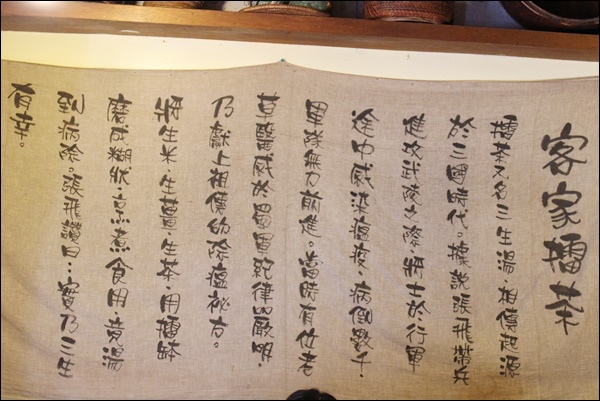 客家擂茶
擂茶又名三生湯,相傳起源
於三國時代。據說張飛帶兵
進攻武陵之際,將士於行軍
途中感染瘟疫,病倒數千,
團隊無力前進。當時有位老
草醫感於蜀軍紀律嚴明,
乃獻上祖傳的除瘟祕方。
將生米、生薑、生茶,用擂缽
磨成糊狀,烹煮食用,竟湯
到病除。張飛讚曰:實乃三生
有幸。